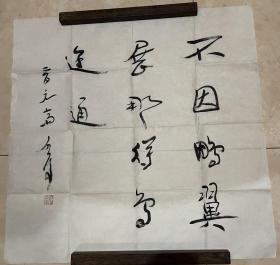 不因鹏翼
展那得鸟
途通